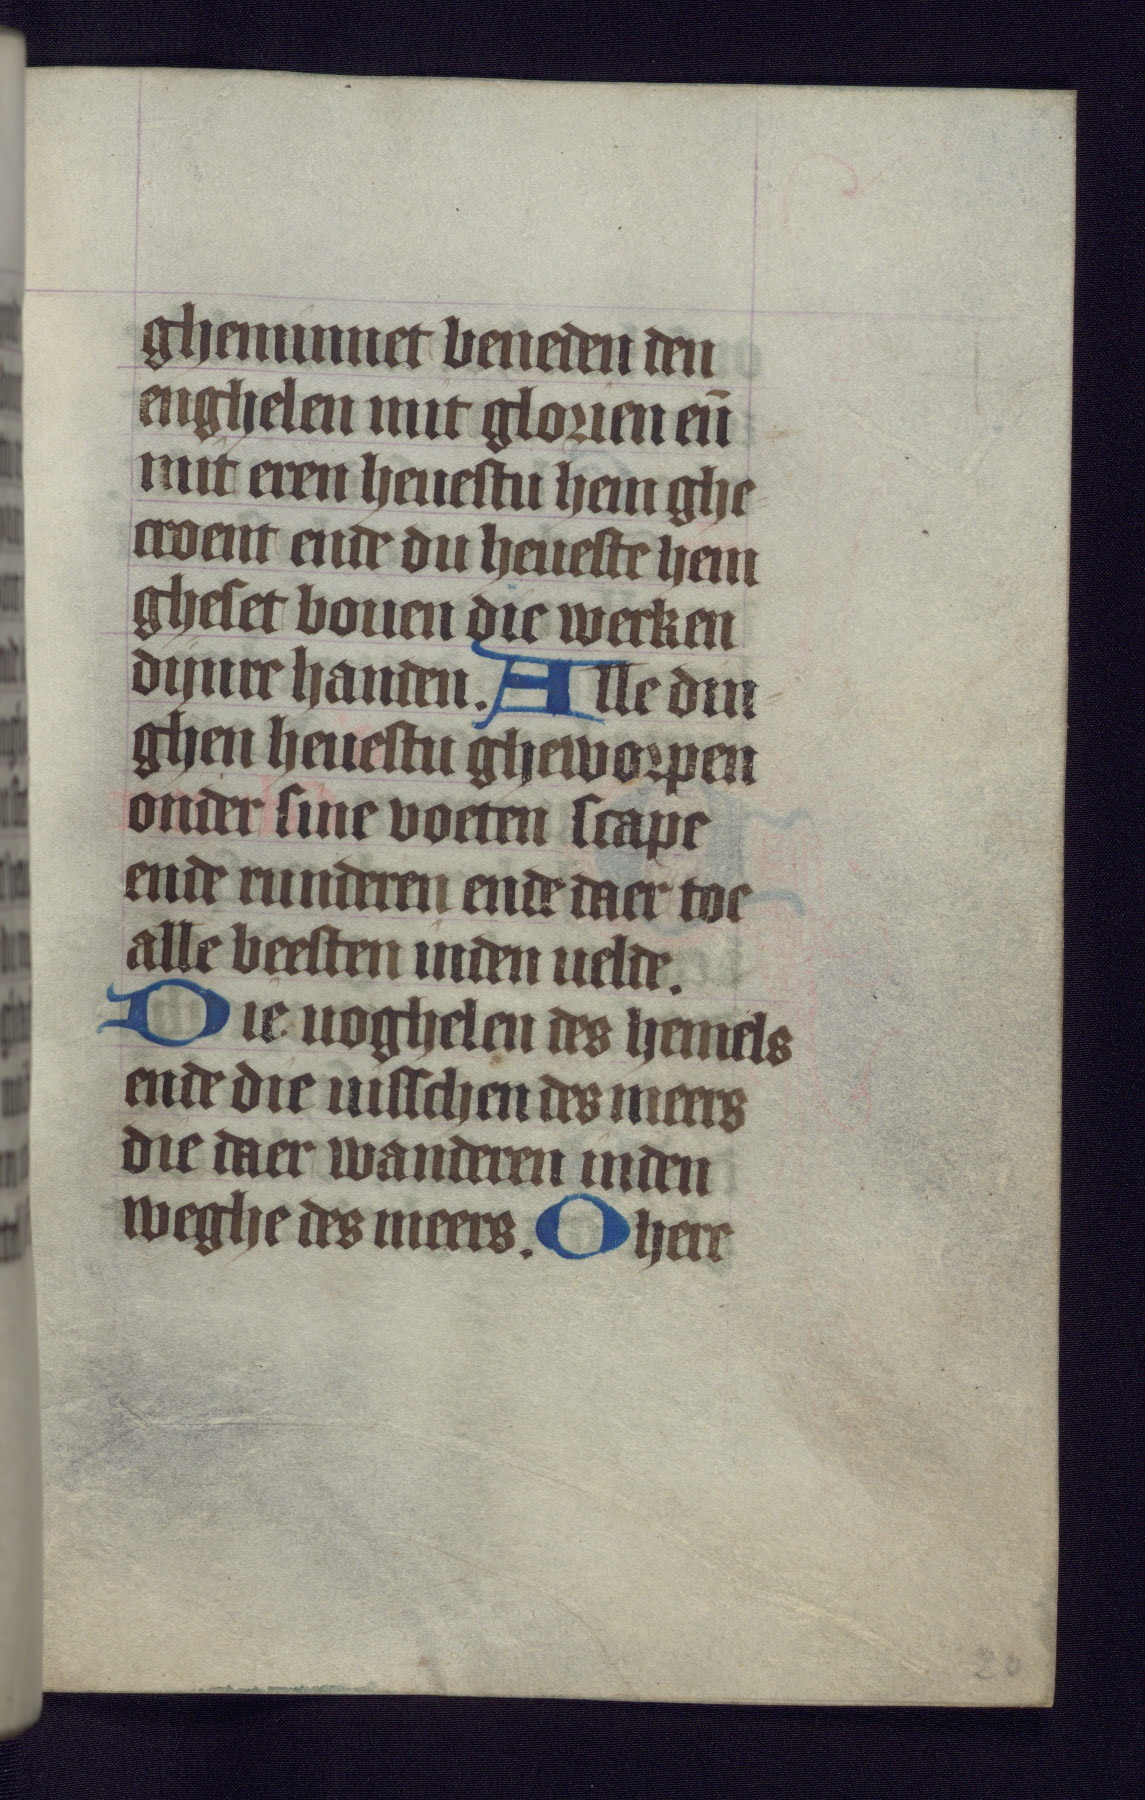 gheminnet beneden den
enghelen mit glorien en̄
mit eren heuestu hem ghe
croent ende du heueste hem
gheset bouen die werken
dijnre handen. Alle din
ghen heuestu gheworpen
onder sine voeten scape
ende runderen ende daer toe
alle beesten inden uelde.
Die uoghelen des hemels
ende die uisschen des meers
die daer wanderen inden
weghe des meers. O here
20